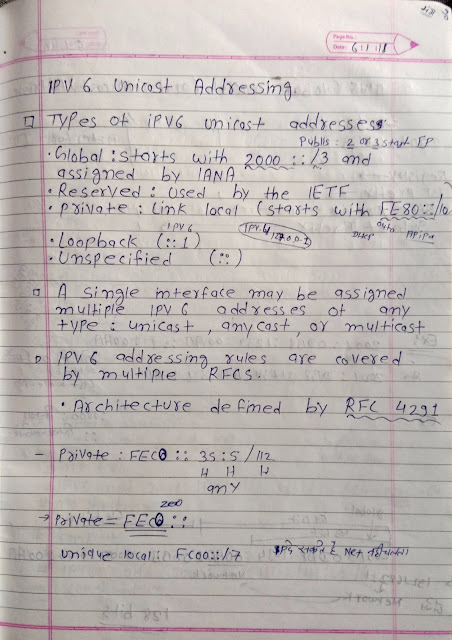 Page No.:
Date: 6
IPV 6 Unicast Addressing
Types of IPV6 unicast addresses
Publis : 2 or 3 start IP
• Global : starts with 2000 :: /3 and
assigned by IANA
• Reserved : Used by the IETF
• Private : Link local (starts with FE80::/10
auto
DHCP APIPA
IPV6
• Loopback (::1) IPV4 127.0.0.1
• Unspecified (::)
A single interface may be assigned
multiple IPV6 addresses of any
type : unicast , anycast, or multicast
IPV6 addressing rules are covered
by multiple RFCS.
• Architecture defined by RFC 4291
- Private : FEC0 :: 35:5 /112
H H H
any
zero
→ Private = FEC0 ::
Unique local : FC00::/7 IP दे सकते है Net नही चलेगा